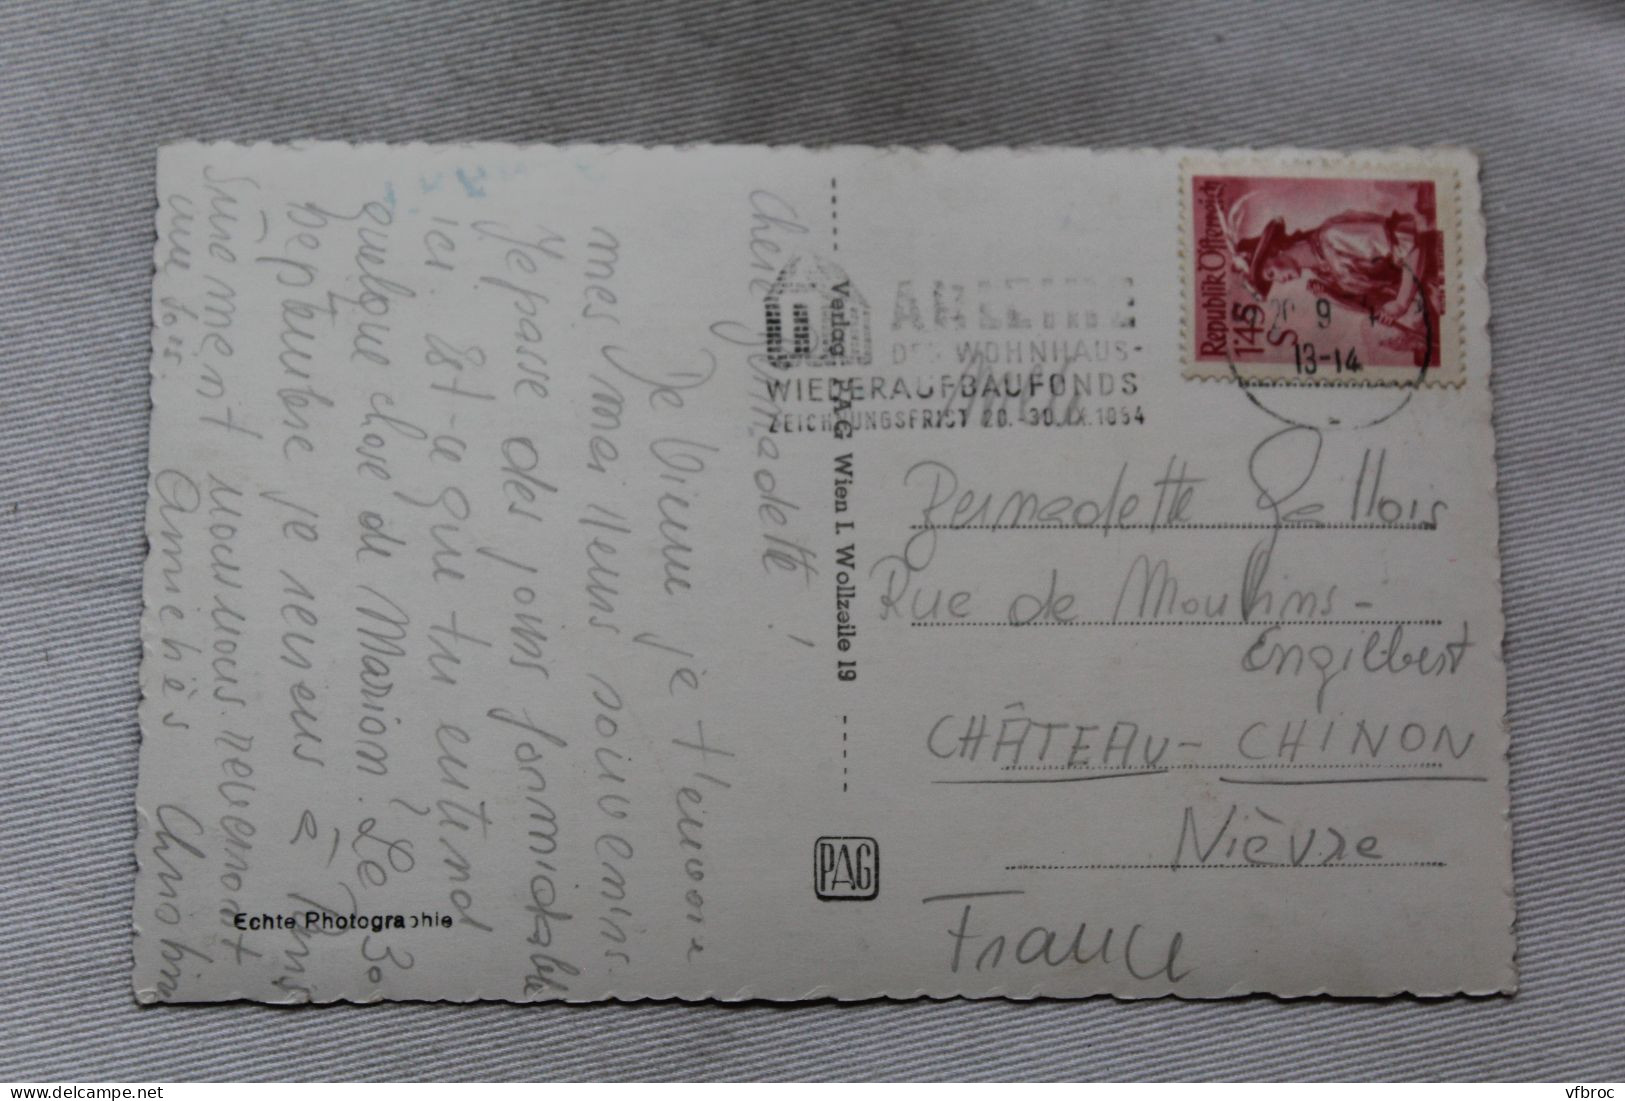 Chère Bernadette!
De Vienne je t'envoie
mes meilleurs souvenirs.
Je passe des jours formidables
ici. Est-ce que tu entend
quelque chose de Marion? Le 30
Septembre je reviens à Paris
Sûrement nous nous reverront
une fois. Amitiés
Verlag PAG Wien I. Wollzeile 19
PAG
Echte Photographie
ANLEIHE
DES WOHNHAUS-
WIEDERAUFBAUFONDS
ZEICHNUNGSFRIST 20.-30.IX.1954
Republik Österreich
1'45 S
20. 9
13-14
Mlle
Bernadette Gallois
Rue de Moulins-
Engilbert
CHÂTEAU-CHINON
Nièvre
France
vfbroc